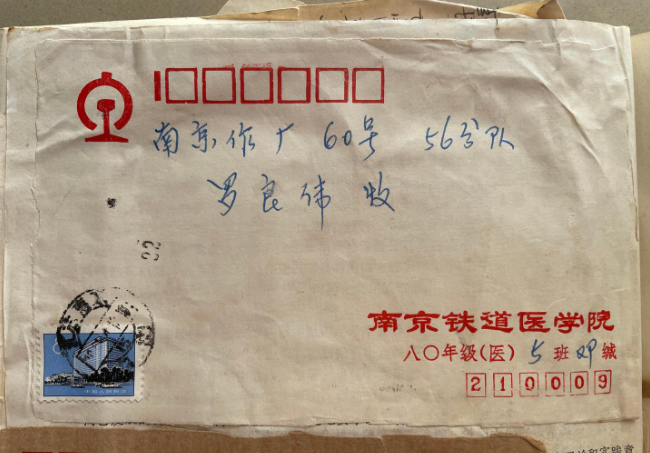 南京作厂 60号 56分队
罗良伟 收
南京铁道医学院
八〇年级(医) 5 班 邓 缄
210009